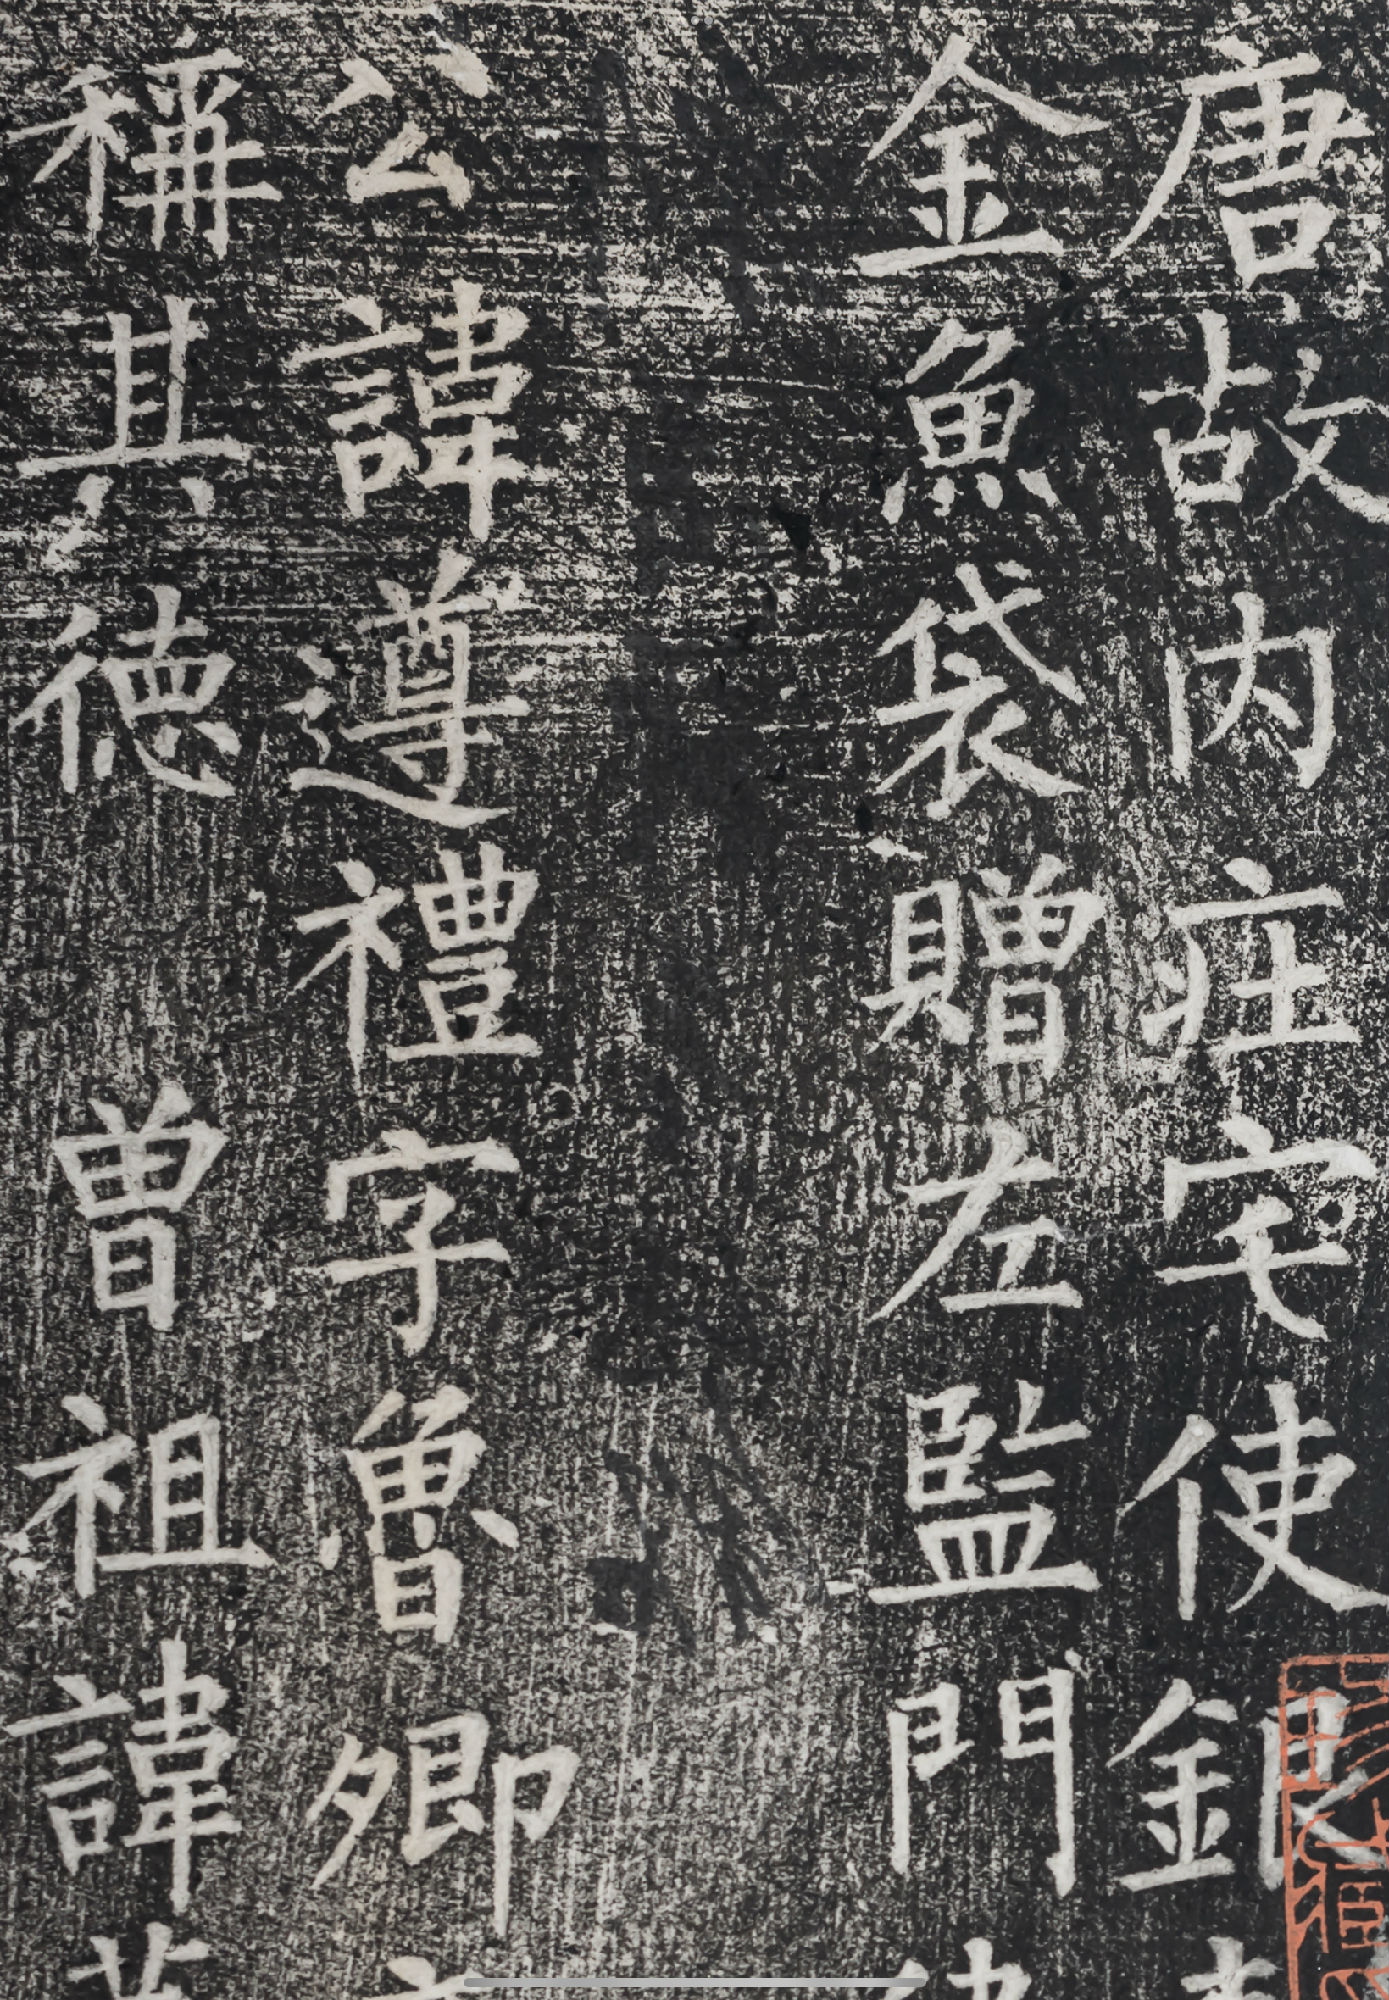 唐故内莊宅使銀青
金魚袋贈左監門
公諱遵禮字魯卿
稱其德 曾祖諱英